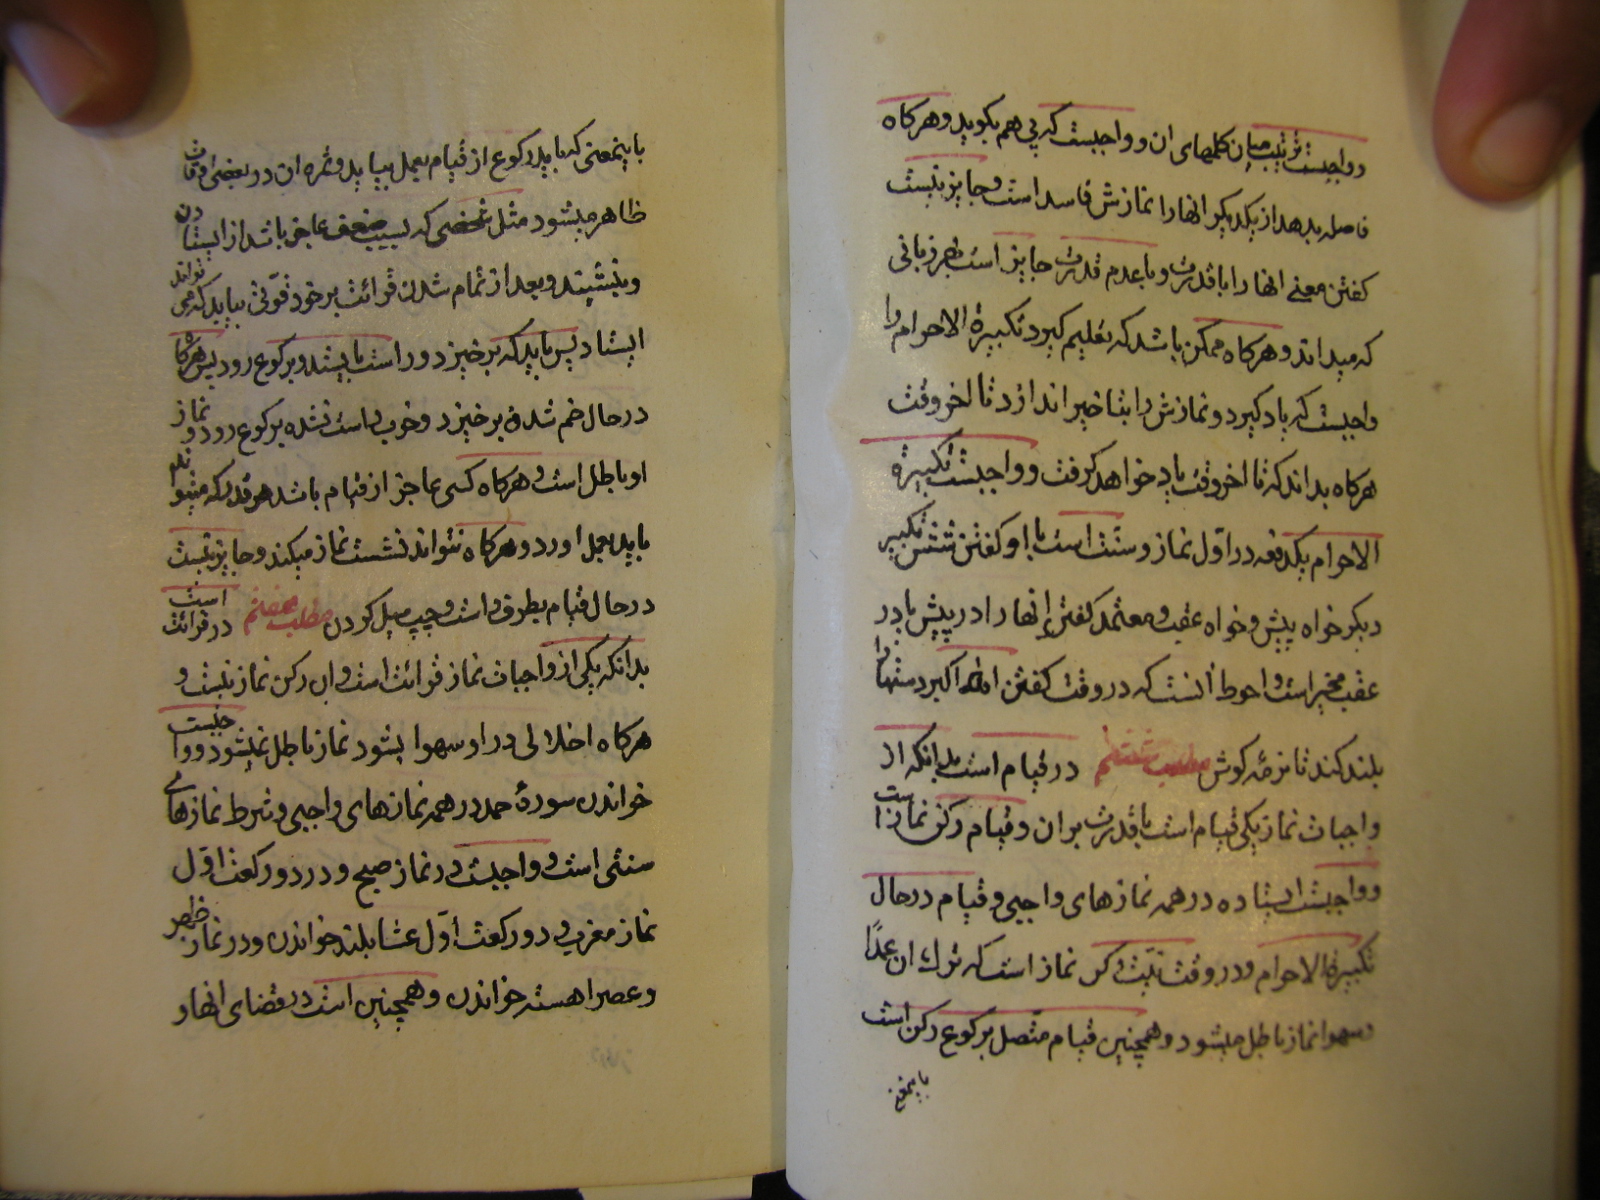 و واجبست ترتیب میان کلمهای ان و واجبست که پی هم بکوید و هر کاه
فاصله بدهد از یکدیکر انها را نمازش فاسد است و جایز نیست
کفتن معنی انها را با قدرت و با عدم قدرت جایز است بهر زبانی
که میداند و هر کاه ممکن باشد که تعلیم کیرد تکبیرة الاحرام را
واجبست که یاد کیرد و نمازش را بتاخیر اندازد تا اخر وقت
هر کاه بداند که تا اخر وقت یاد خواهد کرفت و واجبست تکبیرة
الاحرام یکدفعه در اول نماز و سنت است با او کفتن شش تکبیر
دیکر خواه پیش و خواه عقب و معتمد کفتن انها را در پیش یا در
عقب مخیر است و احوط انست که در وقت کفتن الله اکبر دستها را
بلند کند تا نرمه کوش مطلب ششم در قیام است بدانکه از
واجبات نماز یکی قیام است با قدرت بران و قیام رکن نماز است
و واجبست ایستاده در همه نمازهای واجبی و قیام در حال
تکبیرة الاحرام و در وقت نیت رکن نماز است که ترک ان عمدًا
و سهوا نماز باطل میشود و همچنین قیام متصل برکوع رکن است
باینمعنی
باینمعنی که باید رکوع از قیام بعمل بیاید و ثمره ان در بعضی اوقات
ظاهر میشود مثل شخصی که بسبب ضعف عاجز باشد از ایستادن
و بنشیند و بعد از تمام شدن قرائت بر خود قوتی بیابد که می تواند
ایستاد پس باید که برخیزد و راست بایستد و برکوع رود پس هر کاه
در حال خم شده برخیزد و خوب راست نشده برکوع رود و نماز
او باطل است و هر کاه کسی عاجز از قیام باشد هر قدر که میتواند
باید بعمل اورد و هر کاه نتواند نشست نماز میکند و جایز نیست
در حال قیام بطرف راست و چپ میل کردن مطلب هفتم در قرائت است
بدانکه یکی از واجبات نماز قرائت است و ان رکن نماز نیست و
هر کاه اخلالی در او سهوا بشود نماز باطل نمیشود و واجبست
خواندن سورهٔ حمد در همه نمازهای واجبی و شرط نمازهای
سنتی است و واجبست در نماز صبح و در دو رکعت اول
نماز مغرب و دو رکعت اول عشا بلند خواندن و در نماز ظهر
و عصر اهسته خواندن و همچنین است در قضای انها و